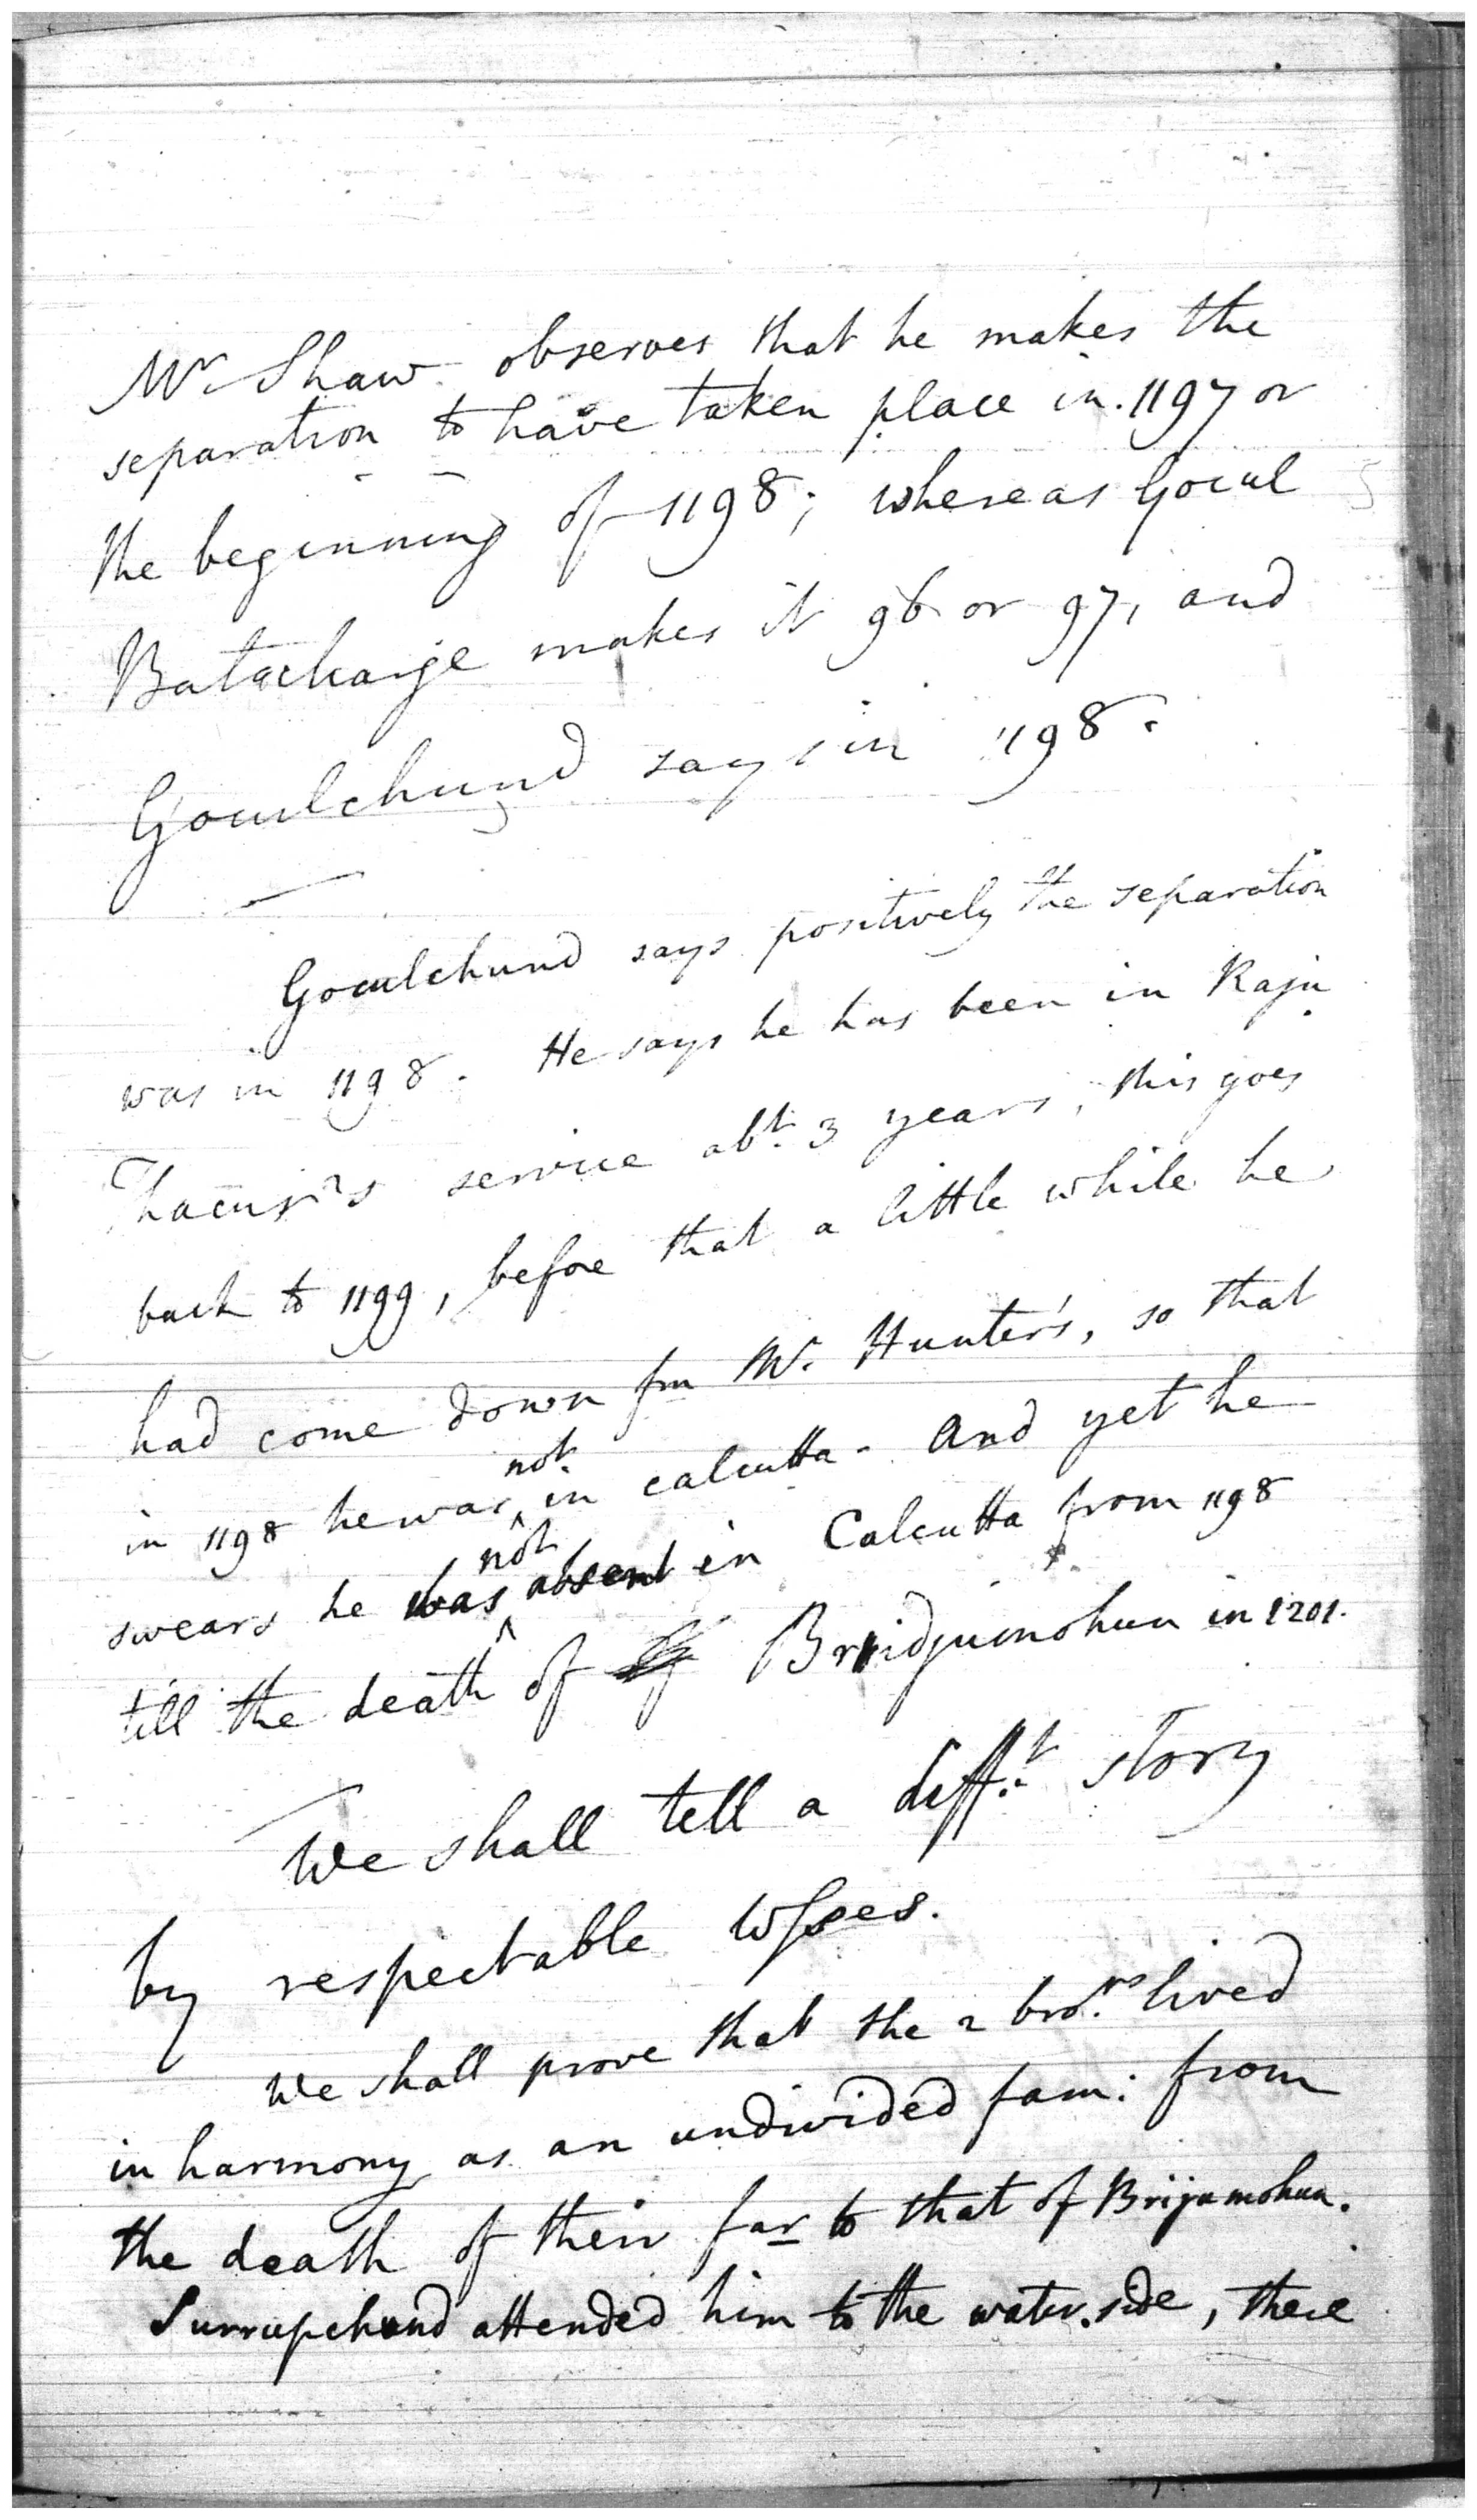 Mr Shaw observes that he makes the
separation to have taken place in 1197 or
the beginning of 1198; whereas Gocul
Batacharje makes it 96 or 97, and
Goculchund says in 1198.
Goculchund says positively the separation
was in 1198. He says he has been in Raju
service abt. 3 years, this goes
back to 1199, before that a little while he
had come down fm Mr. Hunter's, so that
in 1198 he was not in calcutta - and yet he
swears he was not absent in Calcutta from 1198
till the death of Bridjumohun in 1201.
We shall tell a difft. story
by respectable wsses.
We shall prove that the 2 brors. lived
in harmony as an undivided fam: from
the death of their far to that of Brijumohun.
Surrupchund attended him to the water side, there